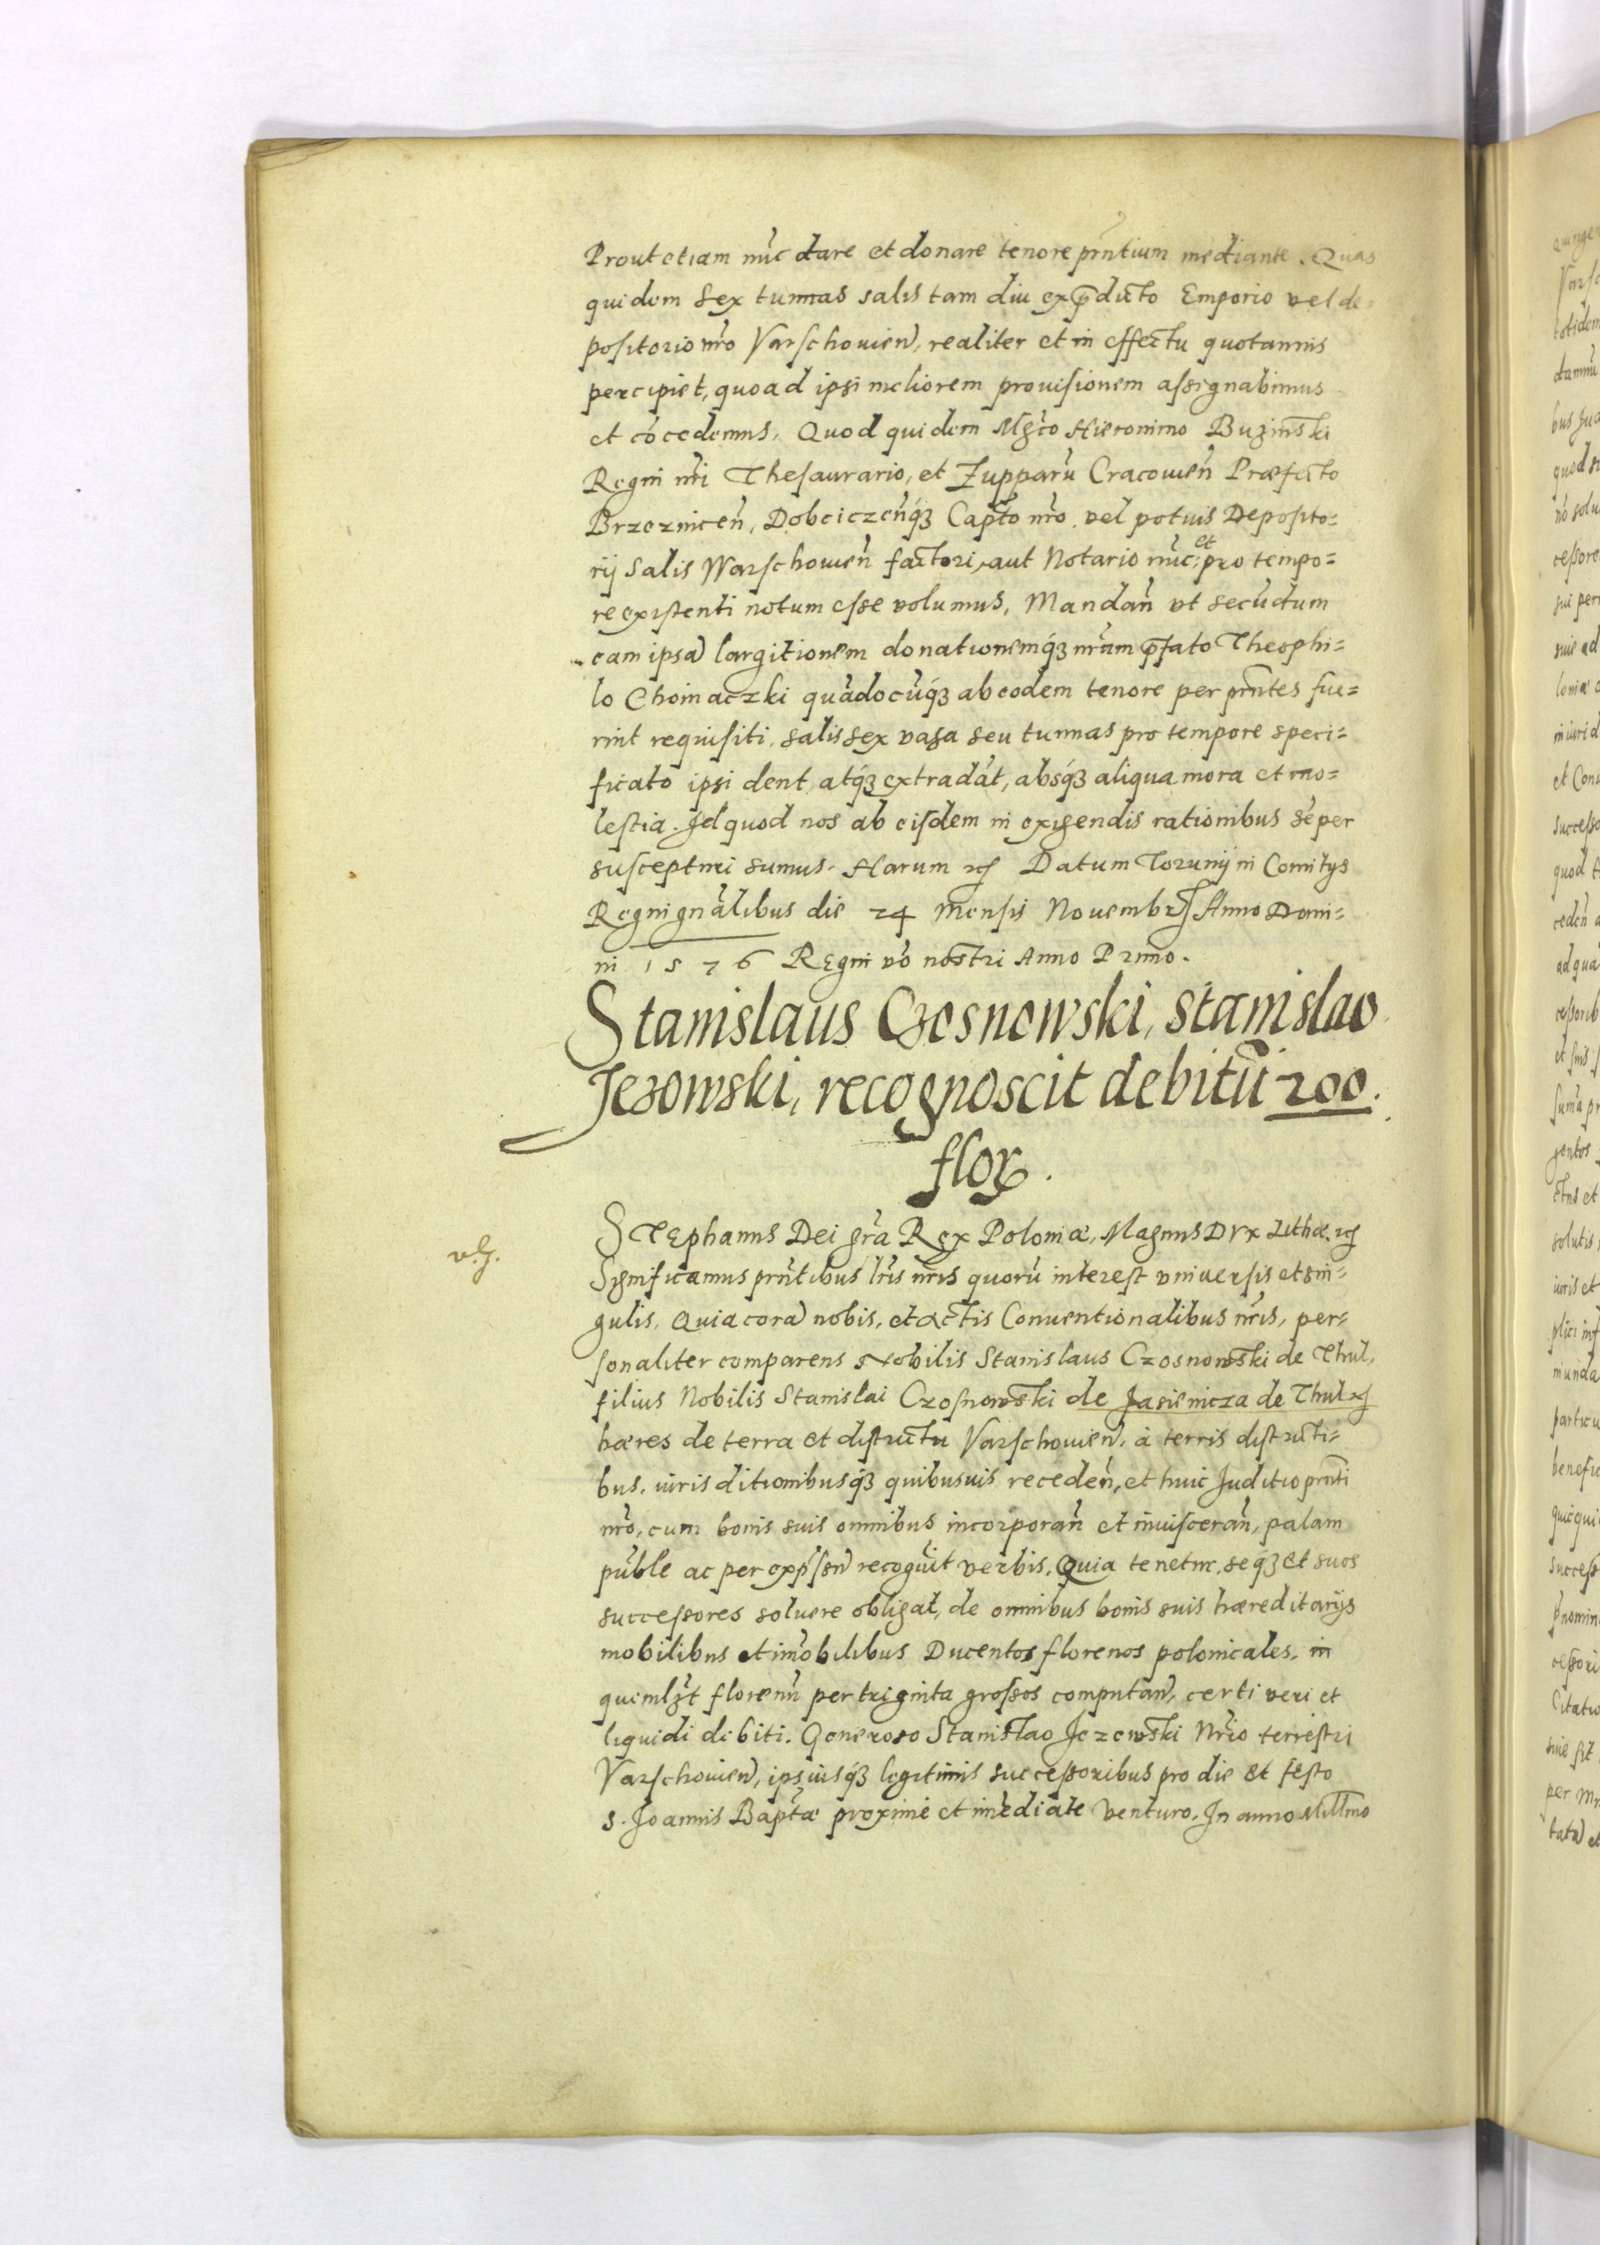 Prout etiam nūc dare et donare tenore prn̄tium mediante. Quas
quidem sex tunnas salis tam diu ex p̄dicto Emporio vel de=
positorio nr̄o Varschouien̄, realiter et in effectu quotannis
percipiet, quoad ipsi meliorem prouisionem assignabimus
et cōcedemus. Quod quidem Mgco Hieronimo Buzinski
Regni nr̄i Thesaurario, et Zupparū Cracouien̄ Præfecto
Brzeznicen̄, Dobciczen̄q́ꝫ Capt̄o nr̄o, vel potuis Deposito=
rij Salis Warschouien̄ factori, aut Notario nūc et pro tempo=
re existenti notum esse volumus, Mandan̄ vt secūdum
eam ipsā largitionem donationemq́ꝫ nr̄am p̄fato Theophi=
lo Choinaczki quādocūq́ꝫ ab eodem tenore per prn̄tes fue=
rint requisiti, salis sex vasa seu tunnas pro tempore speci=
ficato ipsi dent, atq́ꝫ extradāt, absq́ꝫ aliqua mora et mo=
lestia. Id quod nos ab eisdem in exigendis rationibus sēper
suscepturi sumus. Harum ꝛc̃ Datum Torunij in Comitijs
Regni gn̄alibus die 24 Mensis Nouembr̃ Anno Domi=
ni 1576 Regni vō nostri Anno Primo.
Stanislaus Czosnowski, Stanislao
Jezowski, recognoscit debitū 200.
floꝝ.
vlg.
STEphanus Dei gr̄a Rex Poloniæ, Magnus Dvx Lithæ. ꝛc̃
Significamus prn̄tibus lr̄is nr̄is quorū interest vniuersis et sin=
gulis, Quia corā nobis, et Actis Conuentionalibus nr̄is, per=
sonaliter comparens Nobilis Stanislaus Czosnowski de Thul,
filius Nobilis Stanislai Czosnowski de Jasienicza de Thul ꝛc̃
hæres de terra et districtu Varschouien̄, à terris districti=
bus, iurisditionibusq́ꝫ quibusuis receden̄, et huic Juditio prn̄ti
nr̄o, cum bonis suis omnibus incorporan̄ et inuisceran̄, palam
pūble ac per exp̄ssū recoguit verbis, Quia tenetur, seq́ꝫ et suos
successores soluere obligat, de omnibus bonis suis hæreditarijs
mobilibus et im̄obilibus Ducentos florenos polonicales, in
quemlꝫt florenū per triginta grossos computan̄, certi veri et
liquidi debiti. Generoso Stanislao Jezowski Nr̄io terrestri
Varschouien̄, ipsiusq́ꝫ legitimis successoribus pro die et festo
S. Joannis Bapt̄æ proximè et im̄ediate venturo. In anno Mill̄mo